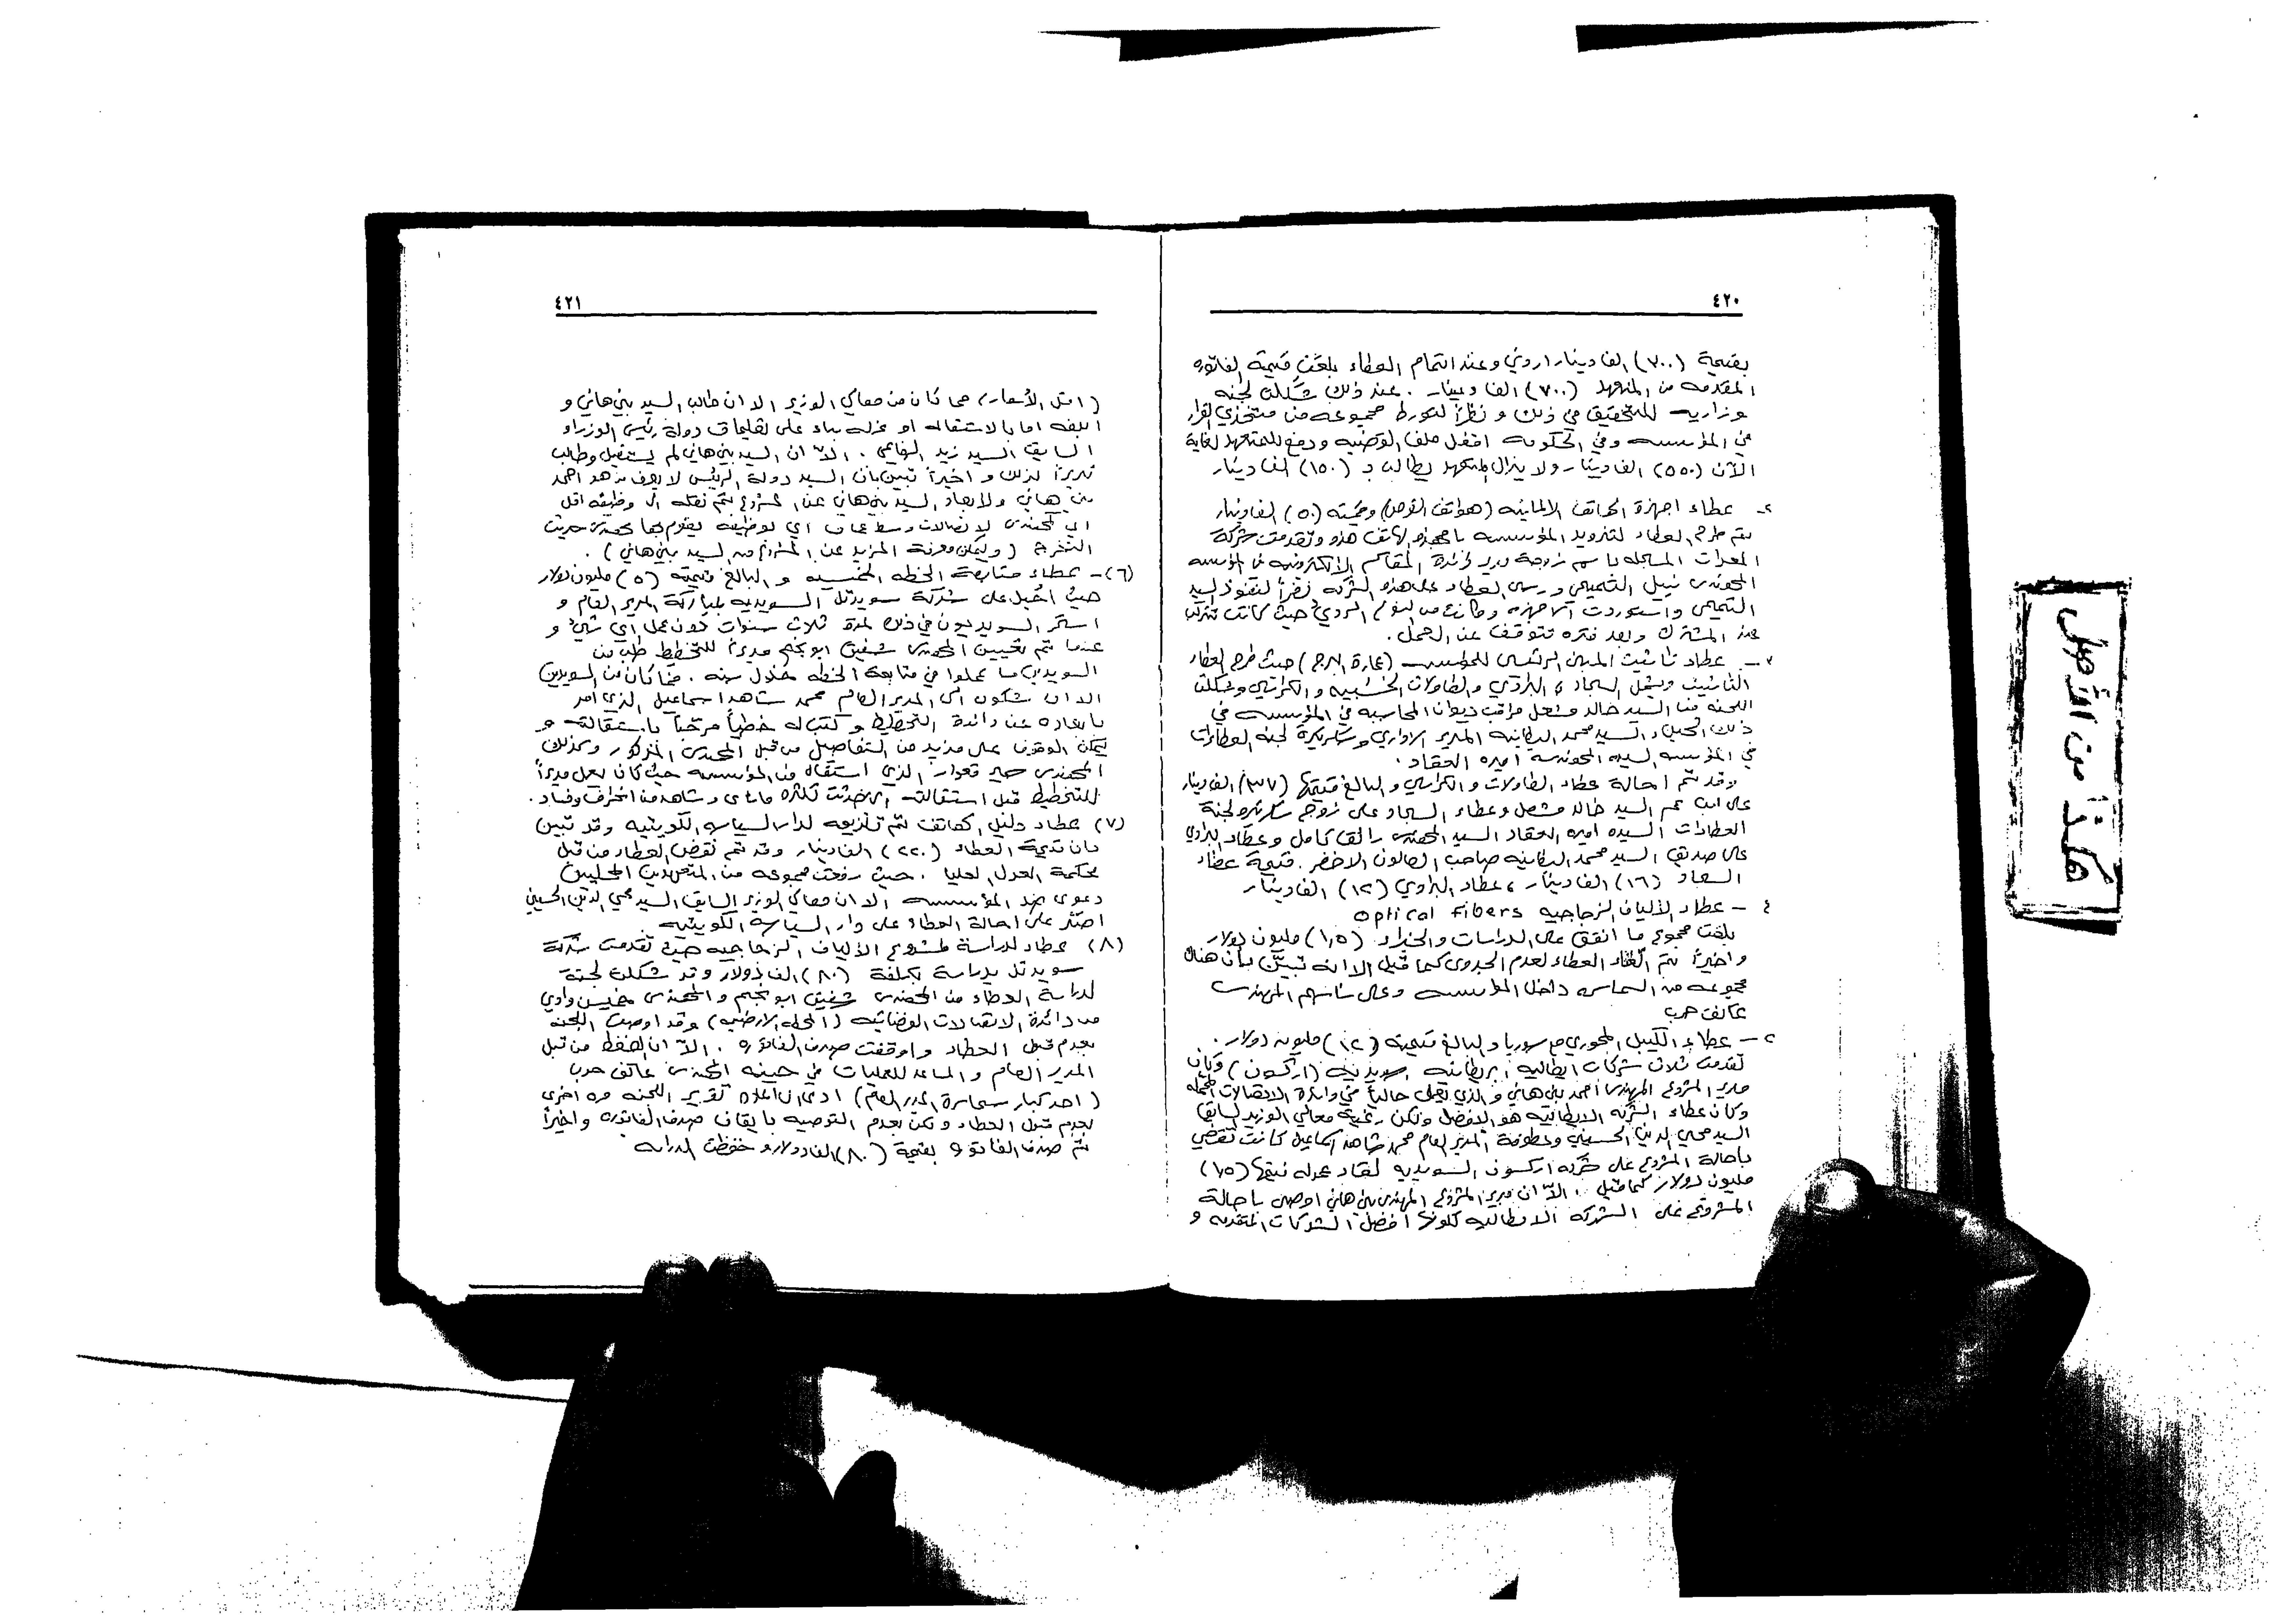 ٤٢٠
بقيمة (٣٠٠) الف دينار اردني وعند اتمام العطاء بلغت قيمة الفاتوره
المقدمه من المتعهد (٧٠٠) الف دينار . عند ذلك شكلت لجنه
وزاريه للتحقيق في ذلك و نظراً لتورط مجموعه من متخذي القرار
في المؤسسه وفي الحكومه اقفل ملف القضيه ودفع للمتعهد لغاية
الآن (٥٥٠) الف دينار ولا يزال المتعهد يطالب بـ (١٥٠) الف دينار
٢- عطاء اجهزة الهاتف الالمانيه (هواتف القرص) وقيمته (٥٠) الف دينار
تم طرح العطاء لتزويد المؤسسه باجهزه الهاتف هذه وتقدمت شركة
المعدات المسجله باسم زوجة مدير دائرة المقاسم الالكترونيه في المؤسسه
المهندس نبيل التميمي ورسى العطاء على هذه الشركه نظراً لنفوذ السيد
التميمي واستوردت الاجهزه وكانت من النوع الردئ حيث كانت تتركب
عند المشترك وبعد فتره تتوقف عن العمل.
٣- عطاء تأثيث المبنى الرئيسي للمؤسسه (عمارة البرج) حيث طرح العطار
التأثيث ويشمل السجاد و البرادي والطاولات الخشبيه والكراسي وشكلت
اللجنه من السيد خالد مشعل مراقب ديوان المحاسبه في المؤسسه في
ذلك الحين والسيد محمد البطاينه المدير الاداري وسكرتيرة لجنه العطاءات
في المؤسسه السيده المهندسه اميره العقاد .
وقد تم احالة عطاء الطاولات والكراسي والبالغ قيمتها (٣٧) الف دينار
على ابن عم السيد خالد مشعل وعطاء السجاد على زوج سكرتيره لجنة
العطاءات السيده اميره العقاد السيد المهندس رائق كامل وعطاء البرادي
على صديق السيد محمد البطاينه صاحب الصالون الاخضر. قيمة عطاء
السجاد (١٦) الف دينار ، عطاء البرادي (١٢) الف دينار
٤ - عطاء الألياف الزجاجيه Optical Fibers
بلغت مجموع ما انفق على الدراسات والخبراء (١,٥) مليون دولار
واخيراً تم الغاء العطاء لعدم الجدوى كما قيل الا انه تبين بأن هناك
مجموعه من السماسره داخل المؤسسه وعلى رأسهم المهندس
عاكف حرب
- عطاء الكيبل المحوري مع سوريا والبالغ قيمته (١٢) مليون دولار .
تقدمت ثلاث شركات ايطاليه ، بريطانيه ، سويديه (اركسون) وكان
مدير المشروع المهندس احمد بني هاني والذي يعمل حالياً في دائرة الاتصالات
وكان عطاء الشركه الايطاليه هو الافضل ولكن رغبة معالي الوزير السابق
السيد محي الدين الحسيني وعطوفة المدير العام محمد شاهد اسماعيل كانت تقضي
باحالة المشروع على شركه اركسون السويديه لقاء عموله قيمتها (١,٥)
مليون دولار كما قيل . الاّ ان مدير المشروع المهندس بني هاني اوصى باحالة
المشروع على الشركه الايطاليه كونها افضل الشركات المتقدمه و
٤٢١
(اقل الأسعار) فما كان من معالي الوزير الا ان طالب السيد بني هاني و
ابلغه اما بالاستقاله او عزله بناء على تعليمات دولة رئيس الوزراء
السابق السيد زيد الرفاعي . الاّ ان السيد بني هاني لم يستقيل وطالب
تبريراً لذلك و اخيراً تبين بان السيد دولة الرئيس لا يعرف من هو احمد
بني هاني ولابعاد السيد بني هاني عن المشروع تم نقله الى وظيفه اقل
اي مهندس لاتصالات وسط عمان اي لوظيفه يقوم بها مهندس حديث
التخرج (ويمكن معرفة المزيد عن المشروع من السيد بني هاني) .
(٦)- عطاء متابعة الخطه الخمسيه و البالغ قيمته (٥) مليون دولار
حيث احيل على شركة سويدتل السويديه بمباركة المدير العام و
استمر السويديون في ذلك لمدة ثلاث سنوات دون عمل اي شيئ و
عندما تم تعيين المهندس شفيق ابو نجم مديراً للتخطيط طلب من
السويديين ما عملوا في متابعة الخطه خلال سنه . فما كان من السويديين
الا ان شكون الى المدير العام محمد شاهد اسماعيل الذي امر
بابعاده عن دائرة التخطيط وكتب له خطياً مرحباً باستقالته و
يمكن الوقوف على مزيد من التفاصيل من قبل المهندس المذكور وكذلك
المهندس سمير قعوار الذي استقال من المؤسسه حيث كان يعمل مديراً
للتخطيط قبل استقالته لكثره ما رأى وشاهد من انحراف وفساد .
(٧) عطاء دليل الهاتف تم تلزيمه لدار السياسه الكويتيه وقد تبين
بان قيمة العطاء (٢٢٠) الف دينار وقد تم نقض العطاء من قبل
محكمة العدل العليا . حيث رفعت مجموعه من المتعهدين المحليين
دعوى ضد المؤسسه الا ان معالي الوزير السابق السيد محي الدين الحسيني
اصّر على احالة العطاء على دار السياسه الكويتيه
(٨) عطاء لدراسة لمشروع الألياف الزجاجيه حيث تقدمت شركة
سويدتل بدراسة بكلفة (٨٠) الف دولار وقد شكلت لجنة
لدراسة العطاء من المهندس شفيق ابو نجم والمهندس وادي
من دائرة الاتصالات الفضائيه (المحطه الارضيه) وقد اوصت اللجنه
بعدم قبول العطاء واوقفت صرف الفاتوره . الاّ ان الضغط من قبل
المدير العام و المساعد للعمليات في حينه المهندس عاكف حرب
(احد كبار سماسرة المدير العام) ادى الى اعاده تقرير اللجنه مره اخرى
بعدم قبول العطاء ولكن بعدم التوصيه بايقاف صرف الفاتوره واخيراً
تم صرف الفاتوره بقيمة (٨٠) الف دولار وحفظت الدراسه
هكذا من الأصل